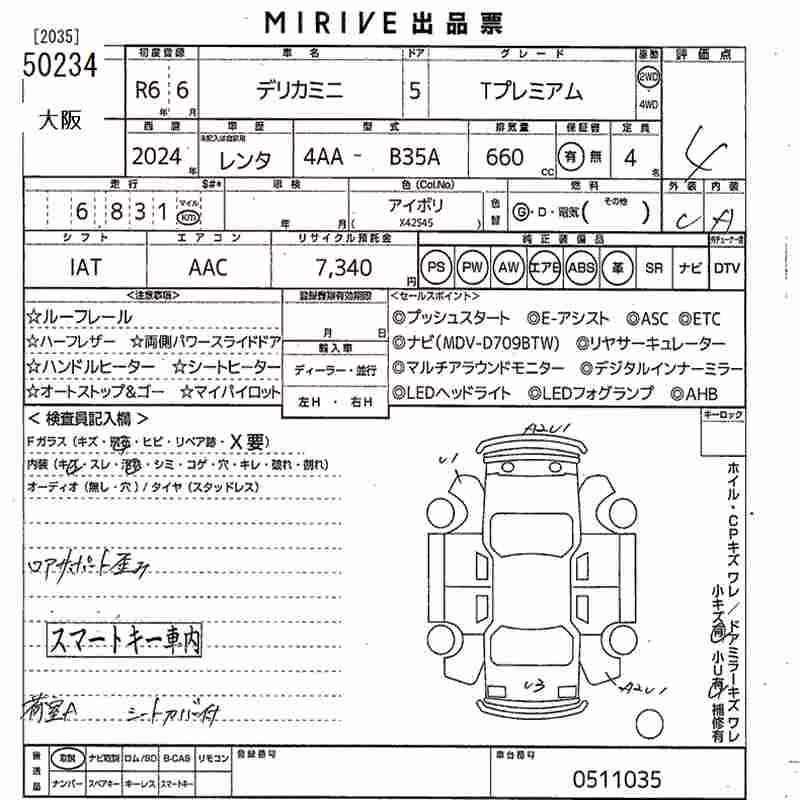 MIRIVE 出品票
[2035]
50234
大阪
初度登録 車名 ドア グレード 駆動 評価点
R6 6 デリカミニ 5 Tプレミアム 2WD
年 月 4WD
西暦 車歴 型式 排気量 保証書 定員
未記入は自家用
2024年 レンタ 4AA - B35A 660 CC 有 無 4名
4
走行 $#* 車検 色(Col.No) 色替 燃料 外装 内装
6 8 3 1 マイル km 年 月 アイボリ G・D・電気( その他 ) C A
( X42S45 )
シフト エアコン リサイクル預託金 純正装備品
IAT AAC 7,340円 PS PW AW エアB ABS 革 SR ナビ DTV
<注意事項> 登録書類有効期限 <セールスポイント>
☆ルーフレール 月 日 ◎プッシュスタート ◎E-アシスト ◎ASC ◎ETC
☆ハーフレザー ☆両側パワースライドドア 輸入車 ◎ナビ(MDV-D709BTW) ◎リヤサーキュレーター
☆ハンドルヒーター ☆シートヒーター ディーラー・並行 ◎マルチアラウンドモニター ◎デジタルインナーミラー
☆オートストップ&ゴー ☆マイパイロット 左H ・ 右H ◎LEDヘッドライト ◎LEDフォグランプ ◎AHB
<検査員記入欄> キーロック
Fガラス(キズ・飛石・ヒビ・リペア跡・X要)
内装(キズ・スレ・汚れ・シミ・コゲ・穴・キレ・破れ・割れ)
オーディオ(無し・穴)/タイヤ(スタッドレス)
A2U1
U1
ロアサポート歪み
スマートキー車内
U3
A2U1
荷室A シートカバー付
ホイル・CPキズ ワレ / ドアミラーキズ ワレ
小キズ有 小U有 補修有
後送品 取説 ナビ取説 ロム/SD B-CAS リモコン 登録番号 車台番号
ナンバー スペアキー キーレス スマートキー 0511035